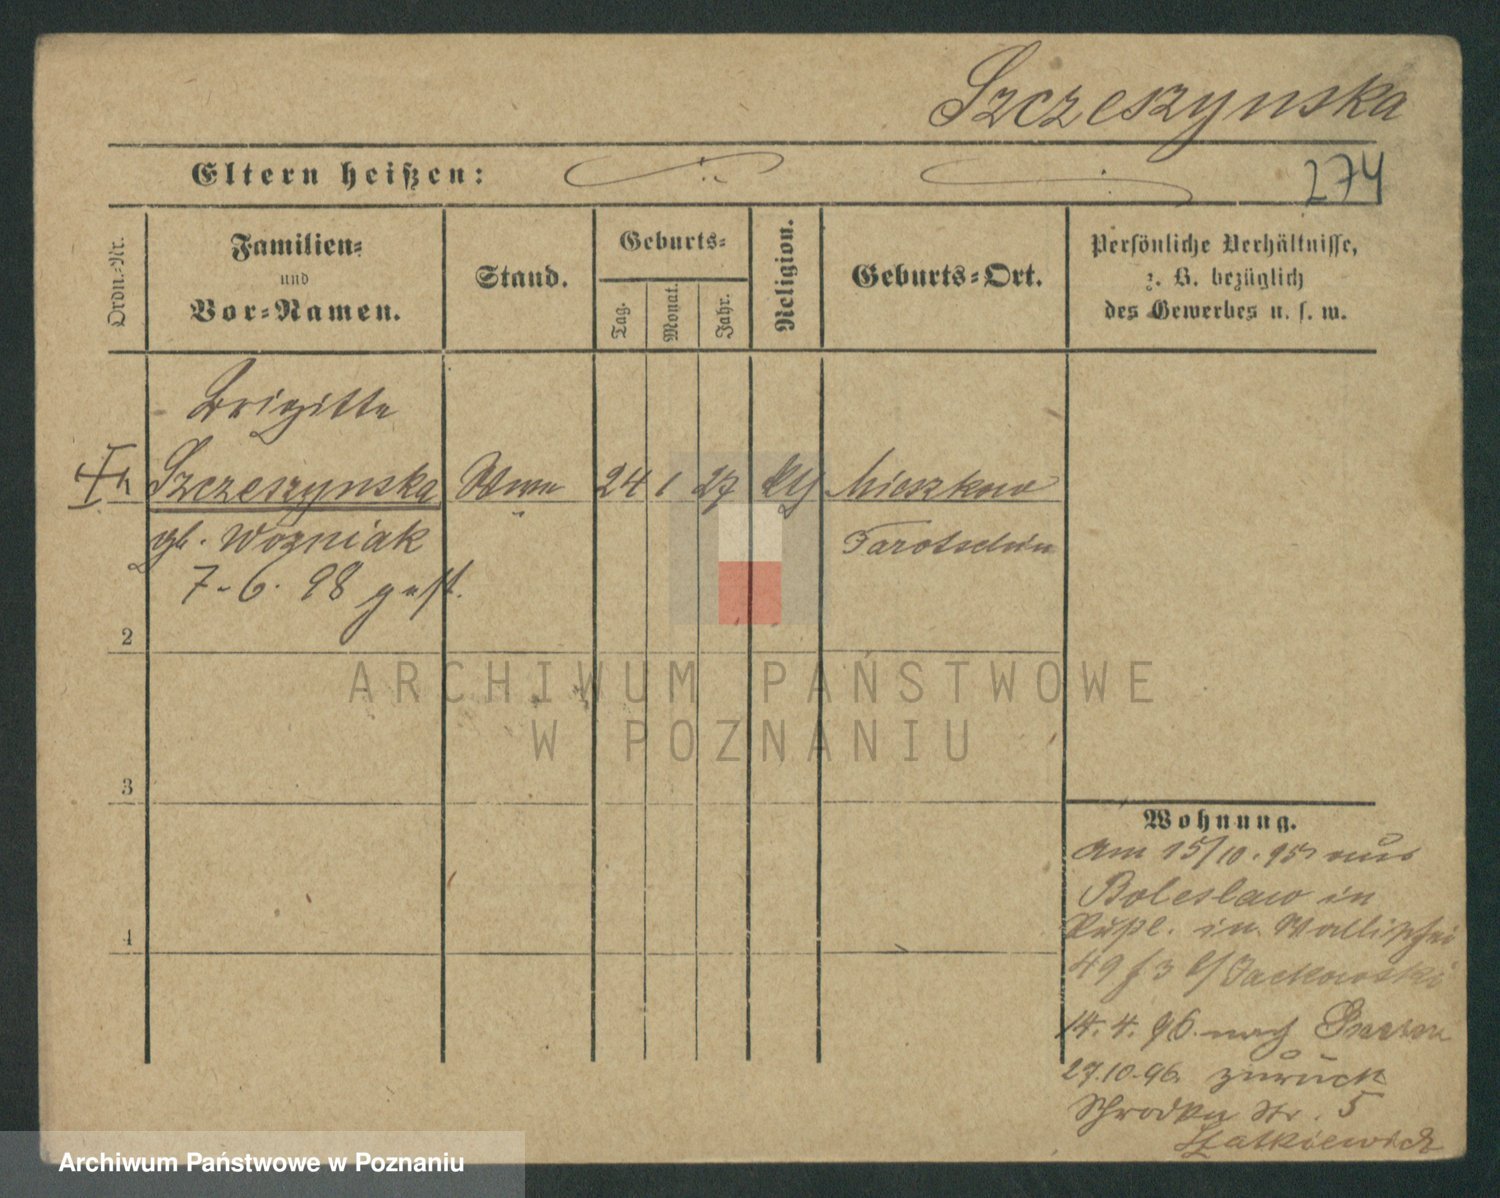 Szczeszynska
Eltern heißen:
274
Ordn.-Nr.
Familien-
und
Vor-Namen.
Stand.
Geburts-
Tag.
Monat.
Jahr.
Religion.
Geburts-Ort.
Persönliche Verhältnisse,
z. B. bezüglich
des Gewerbes u. s. w.
Brigitte
Szczeszynska 24 1 27 Mieszkow
gb. Wozniak Jarotschin
7.6.98 gest.
2
3
4
Wohnung.
Am 15/10.95 aus
Boleslaw in
in Wallischei
49 Jackowski
14.4.96. nach
27.10.96. zurück
Schrodka Str. 5
ARCHIWUM PAŃSTWOWE
W POZNANIU
Archiwum Państwowe w Poznaniu